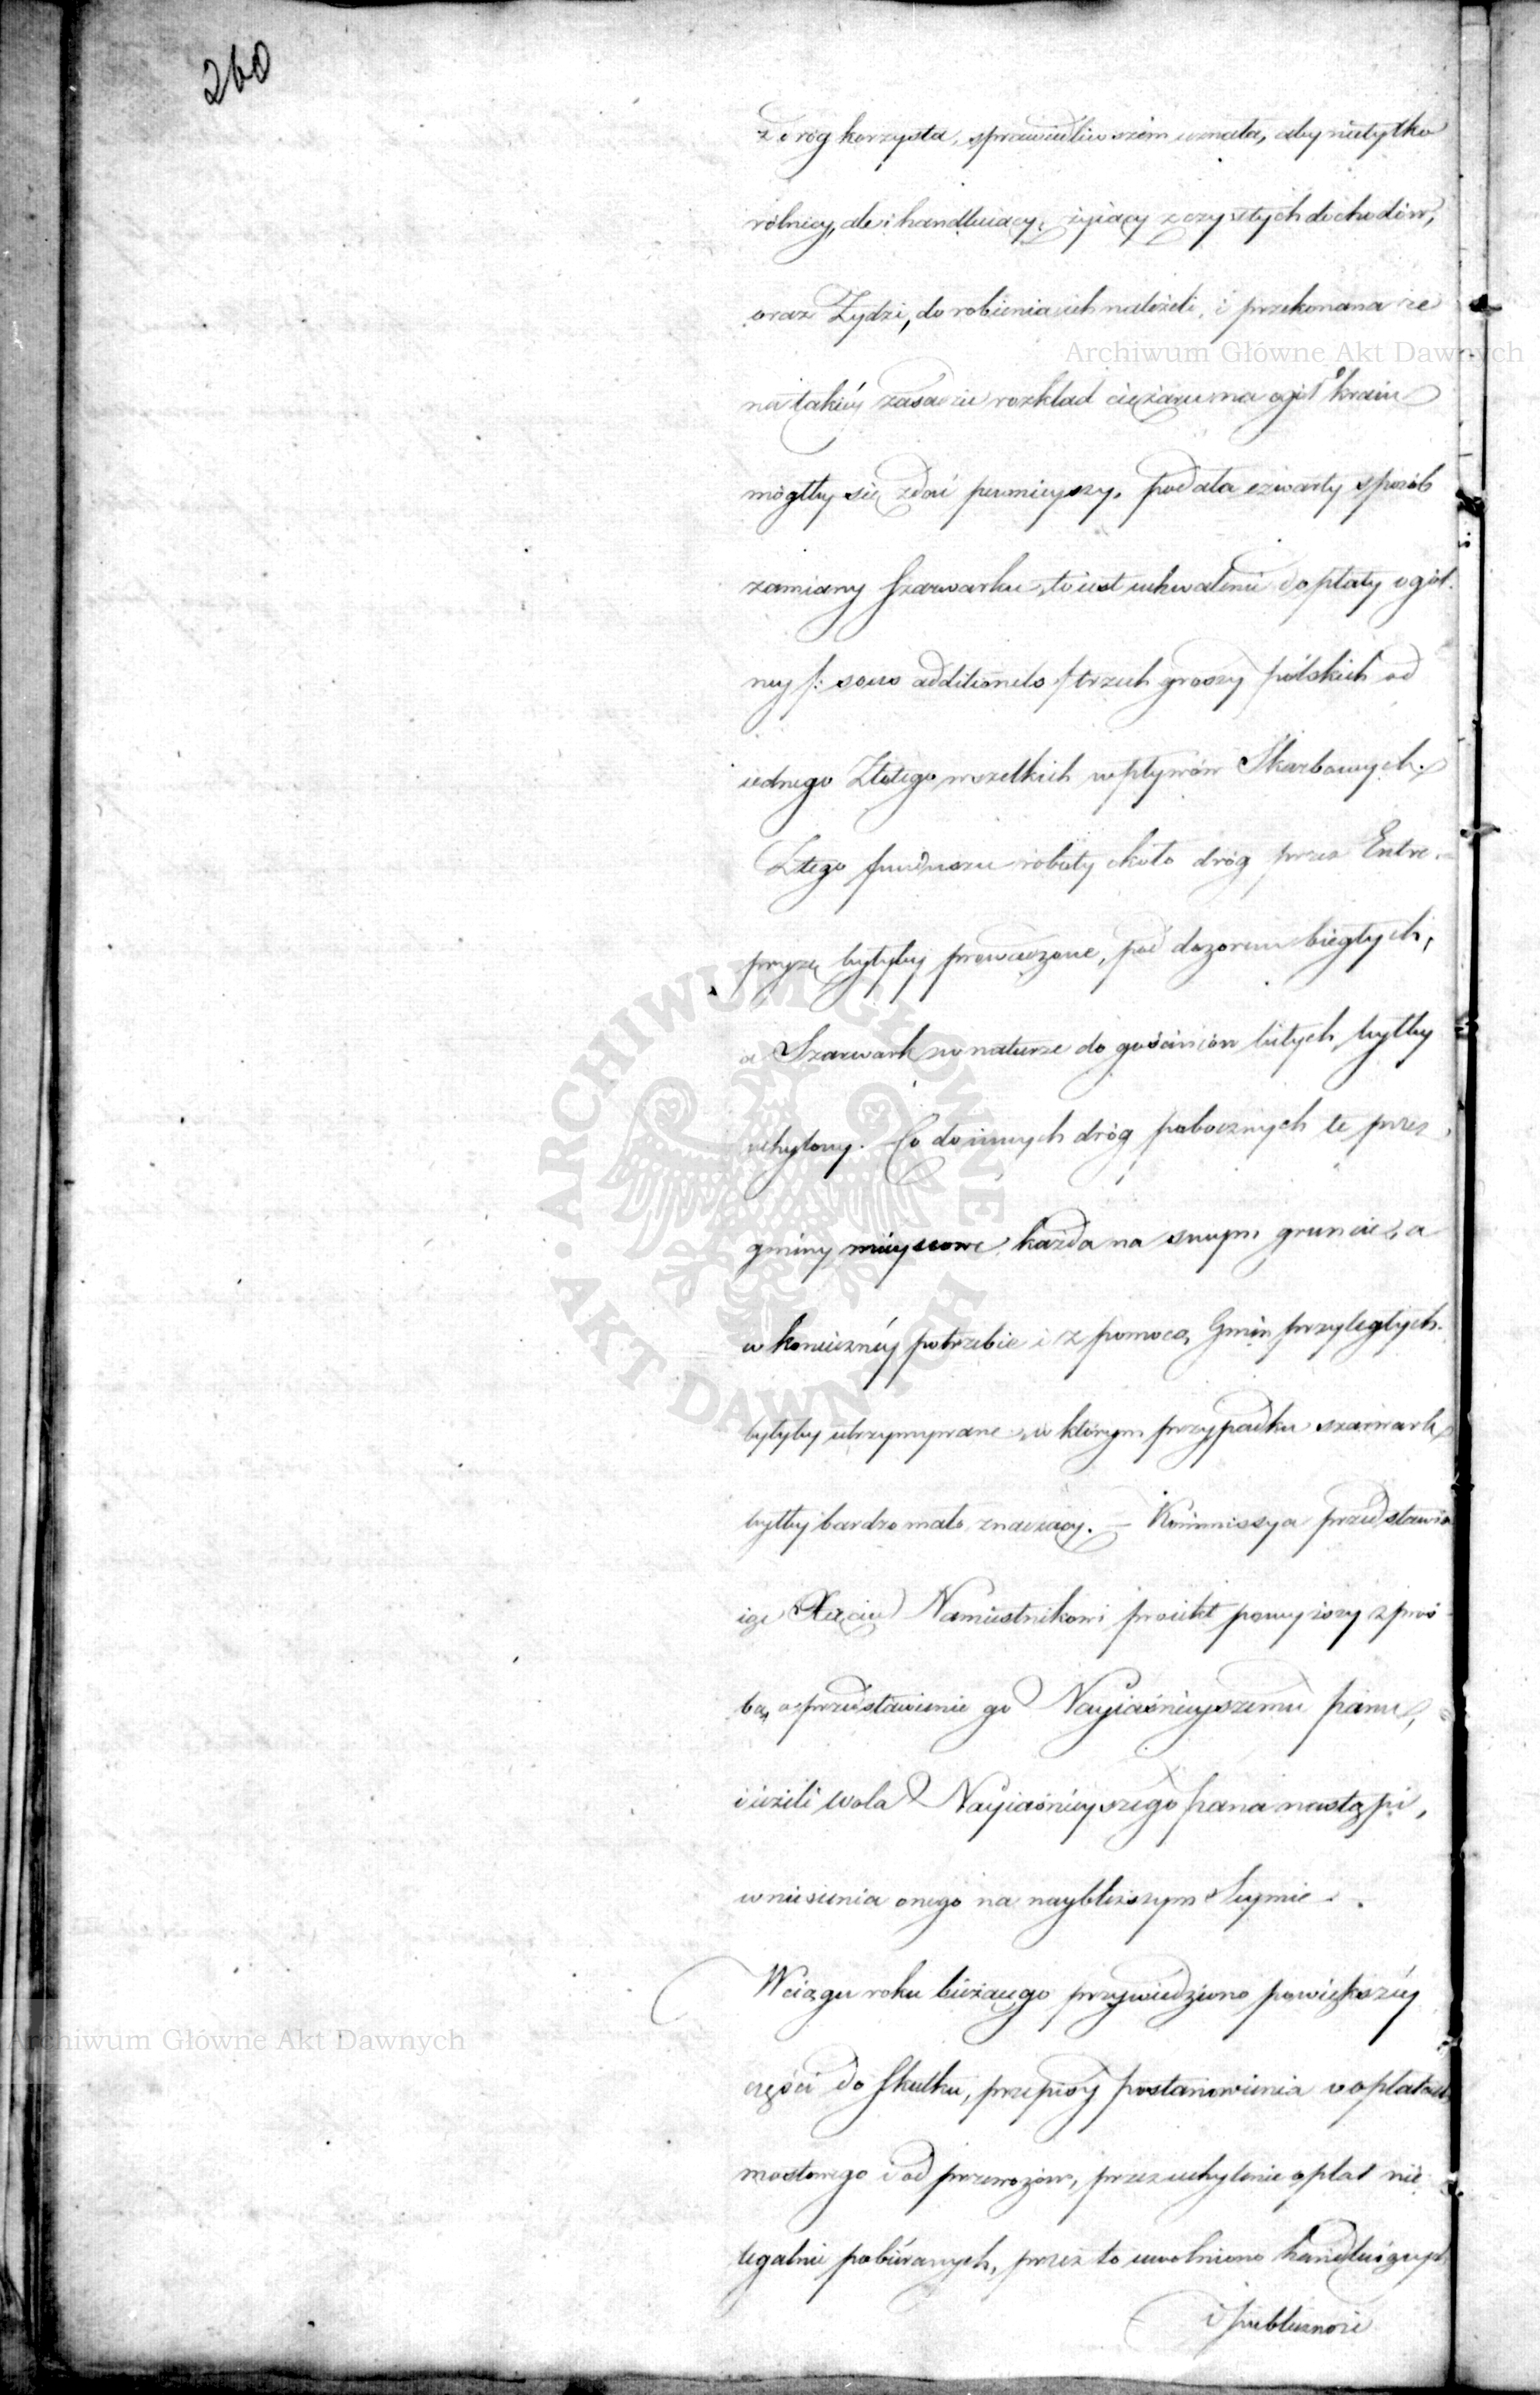 260
z dróg korzysta, sprawiedliwszem uznała, aby nietylko
rólnicy, ale i handluiący, żyiący z czystych dochodów,
oraz Żydzi, do robienia ich należeli, i przekonana że
na takiéy zasadzie rozkład ciężaru na ogół kraiu
mógłby się zdać pewnieyszy, podała czwarty sposób
zamiany Szarwarku, to iest uchwalenie dopłaty ogól-
ney /: sous additionels :/ trzech groszy polskich od
iednego Złotego wszelkich wpływów Skarbowych.
Z tego funduszu roboty około dróg przez Entre-
pryzę byłyby prowadzone, pod dozorem biegłych,
a Szarwark w naturze do gościńców bitych byłby
uchylony. Co do innych dróg pobocznych te przez
gminy mieyscowe, każda na swym gruncie, a
w koniecznéy potrzebie i z pomocą Gmin przyległych
byłyby utrzymywane, w którym przypadku szarwark
byłby bardzo mało znaczący. — Kommissya przedstawia
iąc Xięciu Namiestnikowi proiekt powyższy z proś-
bą o przedstawienie go Nayiaśnieyszemu Panu,
i ieżeli wola Nayiaśnieyszego Pana nastąpi,
wniesienia onego na naybliższym Seymie.
W ciągu roku bieżącego przywiedziono powiększéy
części do skutku, przepisy postanowienia o opłatach
mostowego i od przewozów, przez uchylenie opłat nie-
legalnie pobieranych, przez to uwolniono handluiących
i publiczność
Archiwum Główne Akt Dawnych
Archiwum Główne Akt Dawnych
ARCHIWUM GŁÓWNE AKT DAWNYCH